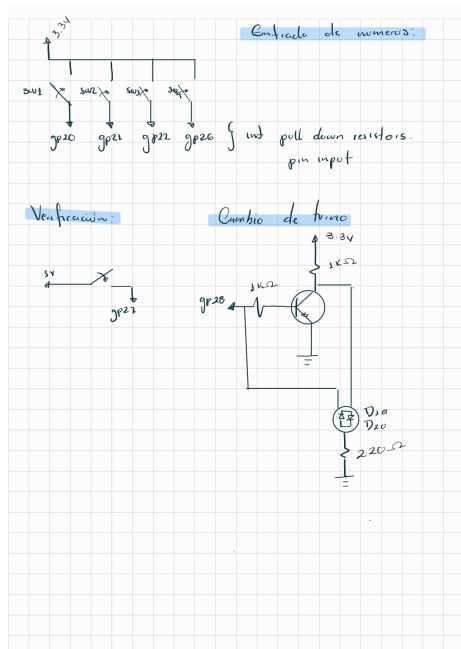 Entrada de numeros:
3.3V
SW1 SW2 SW3 SW4
gp20 gp21 gp22 gp26 } int pull down resistors.
pin input
Verificación:
Cambio de turno
3.3V
1KΩ
1KΩ
gp28
gp27
D10
D20
220Ω